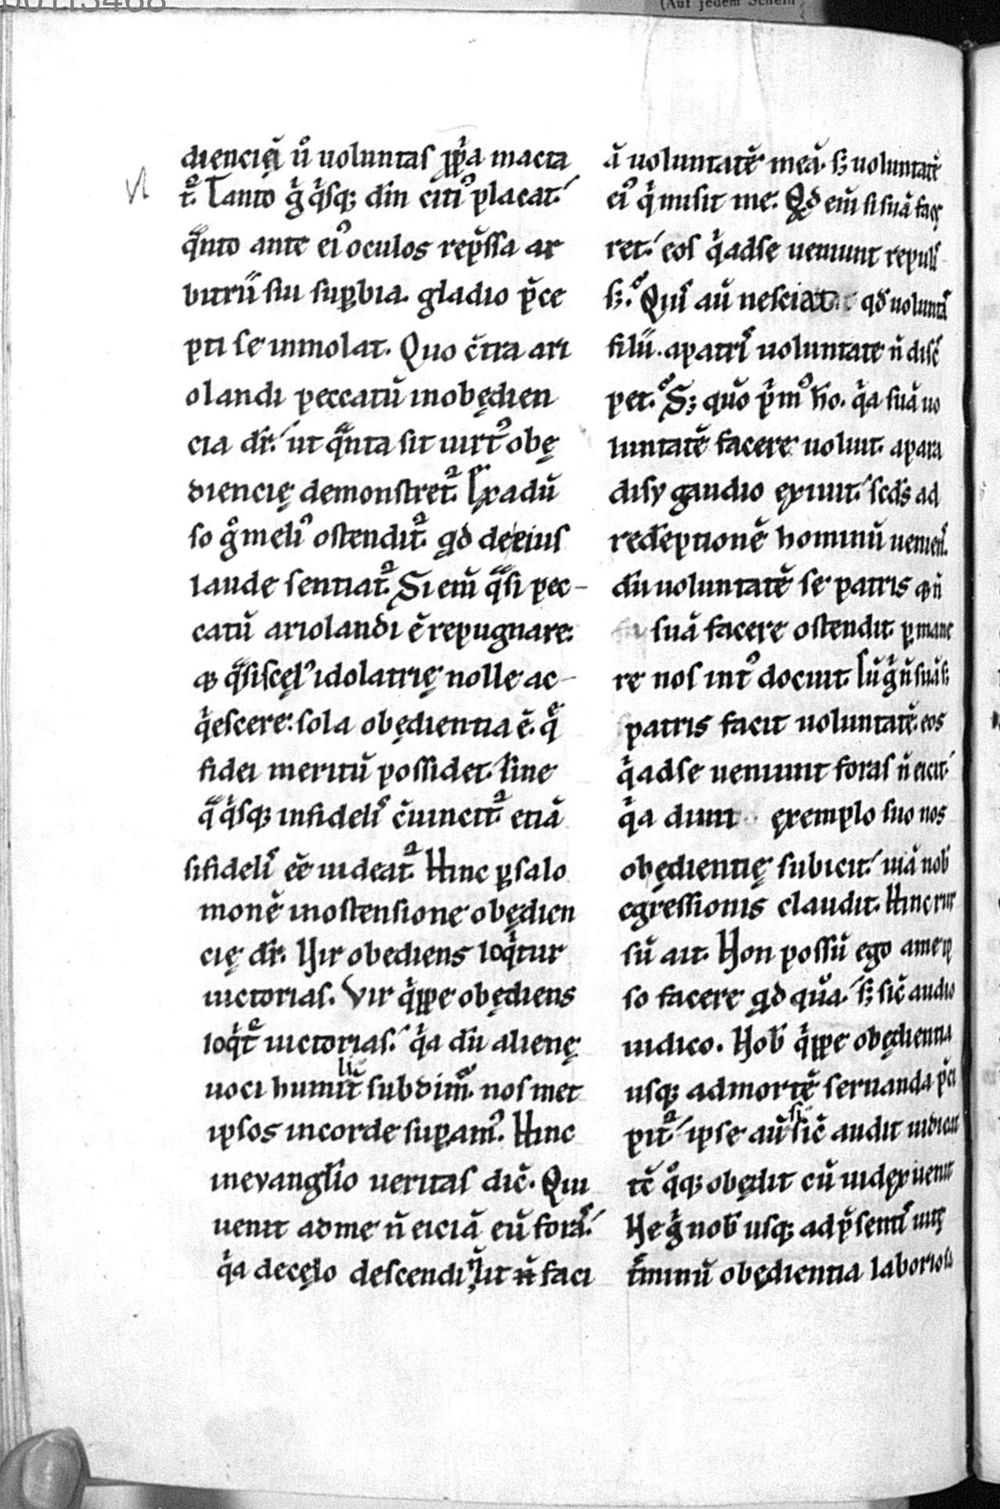 00113468
(Auf jedem Schein
dienciā ů uoluntas ꝓp̃a macta
VI
tͣ. Tanto gͥ qͥsqꝫ dm̄ citiꝰ placat.
qͣnto ante eiꝰ oculos rep̃ssa ar
bitrii sui suꝑbia. gladio p̃ce
pti se inmolat. Quo c̄tra ari
olandi peccatū inobędien
cia dr̄. ut qͣnta sit uirtꝰ obę
diencię demonstretͣ. Sꝫ adū
so gͦ meliꝰ ostenditͣ. qd̄ de eius
laude sentiatͣ. Si em̄ qͣsi pec-
catū ariolandi ē repugnare:
⁊ qͣsi scęlꝰ idolatrię nolle ac-
qͥescere: sola obędientia ē. q̄
fidei meritū possidet. sine
qͣ qͥsqꝫ infidelis ꝯuincitͣ. etiā
si fidelis ēē uideatͣ. Hinc ꝑ salo
monē in ostensione obędien
cię dr̄. Vir obediens loqͥtur
uictorias. Vir qͥppe obędiens
loqͥtͣ uictorias. qͥa dū alienę
li
uoci humit̄ subdimꝰ. nos met
ipsos in corde suꝑamꝰ. Hinc
in evanglio ueritas dic̄. Qui
uenit ad me n̄ eiciā eū foras.
qͥa de cęlo descendi. n̄ ut faci
ā uoluntatē meā. sꝫ uoluntatē
eiꝰ qͥ misit me. Qd em̄ si suā face
ret. eos qͥ ad se ueniunt repulis
sꝫ. Quis aū nesciat qd̄ uoluntas
filii. a patris uoluntate n̄ disc̄
pet. Sꝫ quō p̃mꝰ hō. qͥa suā uo
luntatē facere uoluit. a para
disy gaudio exiuit. scds̄ ad
redēptionē hominū ueniens.
dū uoluntatē se patris ⁊ n̄
suā facere ostendit. ꝑmane
re nos intꝰ docuit. Cū gͥ n̄ suā sꝫ
patris facit uoluntatē. eos
qͥ ad se ueniunt foras n̄ eicit.
qͥa dum exemplo suo nos
obędientię subicit. uiā nob̄
egressionis claudit. Hinc rur
sū ait. Non possū ego a me ip
so facere qd̄ quā. sꝫ sic̄ audio
iudico. Nob̄ qͥppe obędientia
usqꝫ ad mortē seruanda p̃ci
si
pitͣ. ipse aū sic̄ audit iudicat
tc̄ qͦqꝫ obędit cū iudex uenit
Ne gͥ nob̄ usqꝫ ad p̃sentis uitę
t̄minū obędientia laboriosa